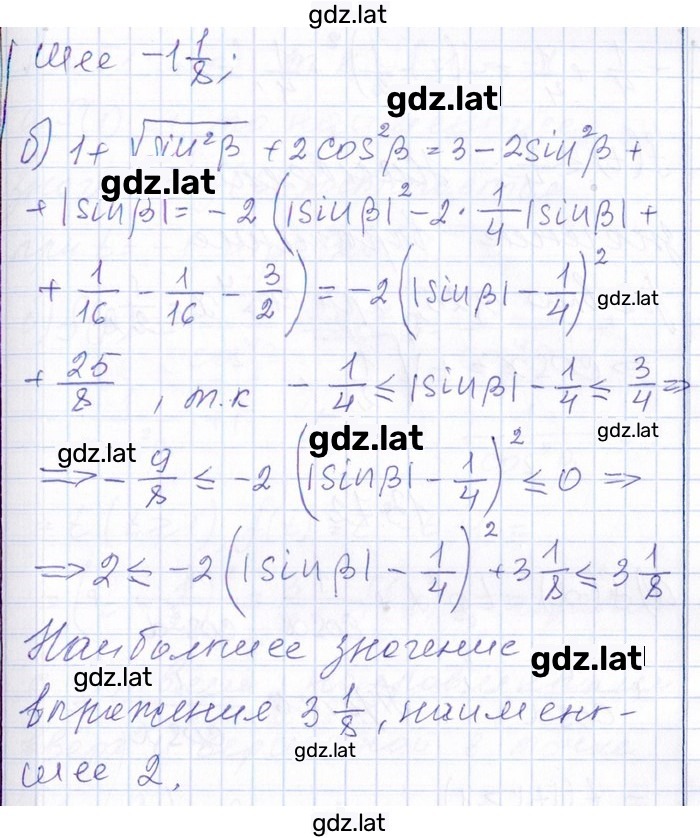 gdz.lat
шее -1 1/8;
gdz.lat
б) 1 + √sin²β + 2cos²β = 3 - 2sin²β +
gdz.lat
+ |sinβ| = -2 (|sinβ|² - 2 · 1/4 |sinβ| +
+ 1/16 - 1/16 - 3/2) = -2 (|sinβ| - 1/4)²
gdz.lat
+ 25/8, т.к - 1/4 ≤ |sinβ| - 1/4 ≤ 3/4 ⇒
gdz.lat
gdz.lat
gdz.lat
⇒ - 9/8 ≤ -2 (|sinβ| - 1/4)² ≤ 0 ⇒
⇒ 2 ≤ -2 (|sinβ| - 1/4)² + 3 1/8 ≤ 3 1/8
Наибольшее значение
gdz.lat
gdz.lat
впражения 3 1/8, наимень-
gdz.lat
шее 2.
gdz.lat